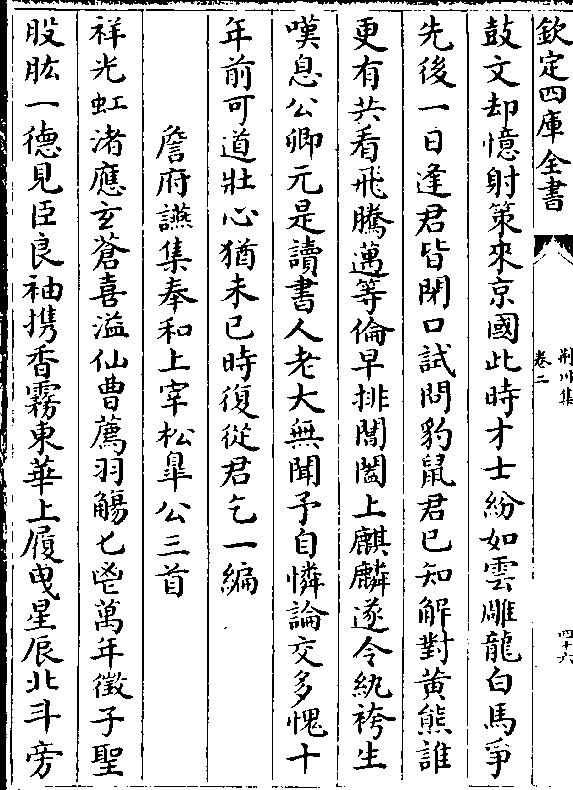 欽定四庫全書
荆川集
卷二
四十六
鼓文却憶射策來京國此時才士紛如雲雕龍白馬爭
先後一日逢君皆閉口試問豹鼠君已知解對黄熊誰
更有共看飛騰邁等倫早排閶闔上麒麟遂令紈袴生
嘆息公卿元是讀書人老大無聞予自憐論交多愧十
年前可道壯心猶未已時復從君乞一編
詹府讌集奉和上宰松臯公三首
祥光虹渚應玄蒼喜溢仙曹薦羽觴七鬯萬年徵子聖
股肱一德見臣良袖携香霧東華上履曳星辰北斗旁